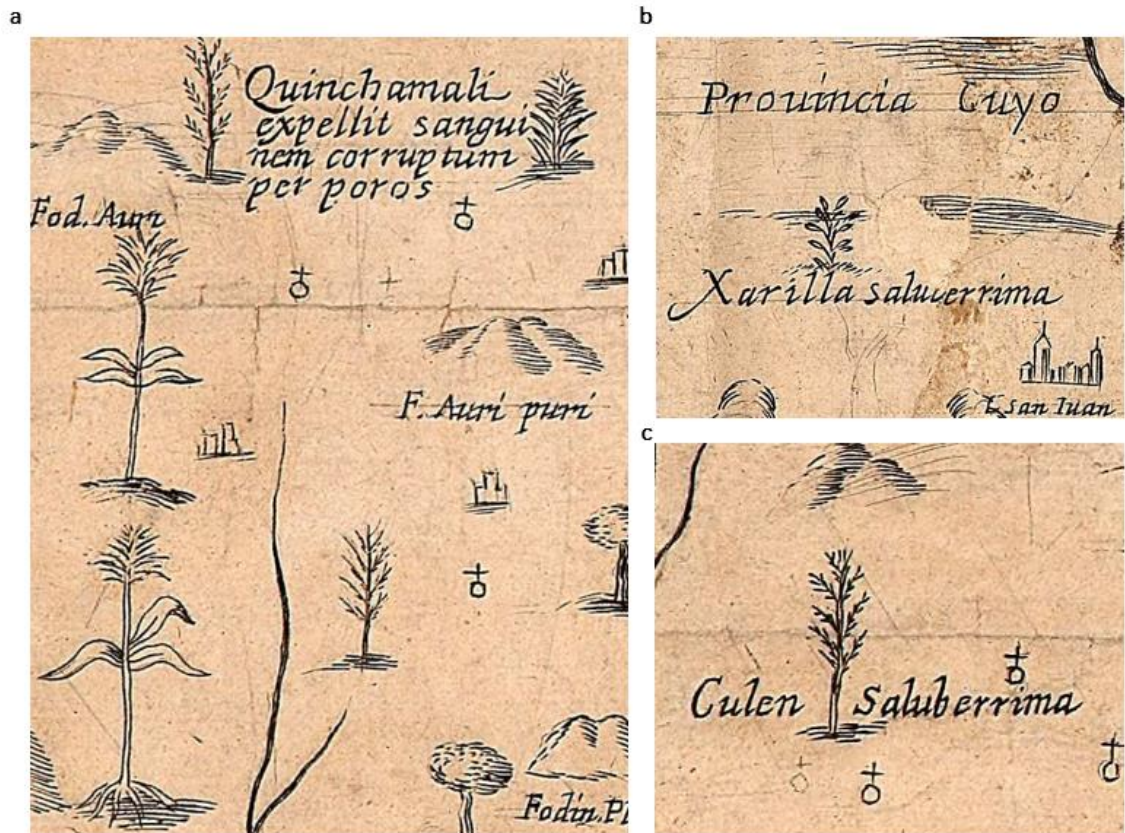 a
Quinchamali
expellit sangui
nem corruptum
per poros
Fod. Auri
F. Auri puri
Fodin. Pl
b
Prouincia Cuyo
Xarilla saluverrima
san Iuan
c
Culen Saluberrima